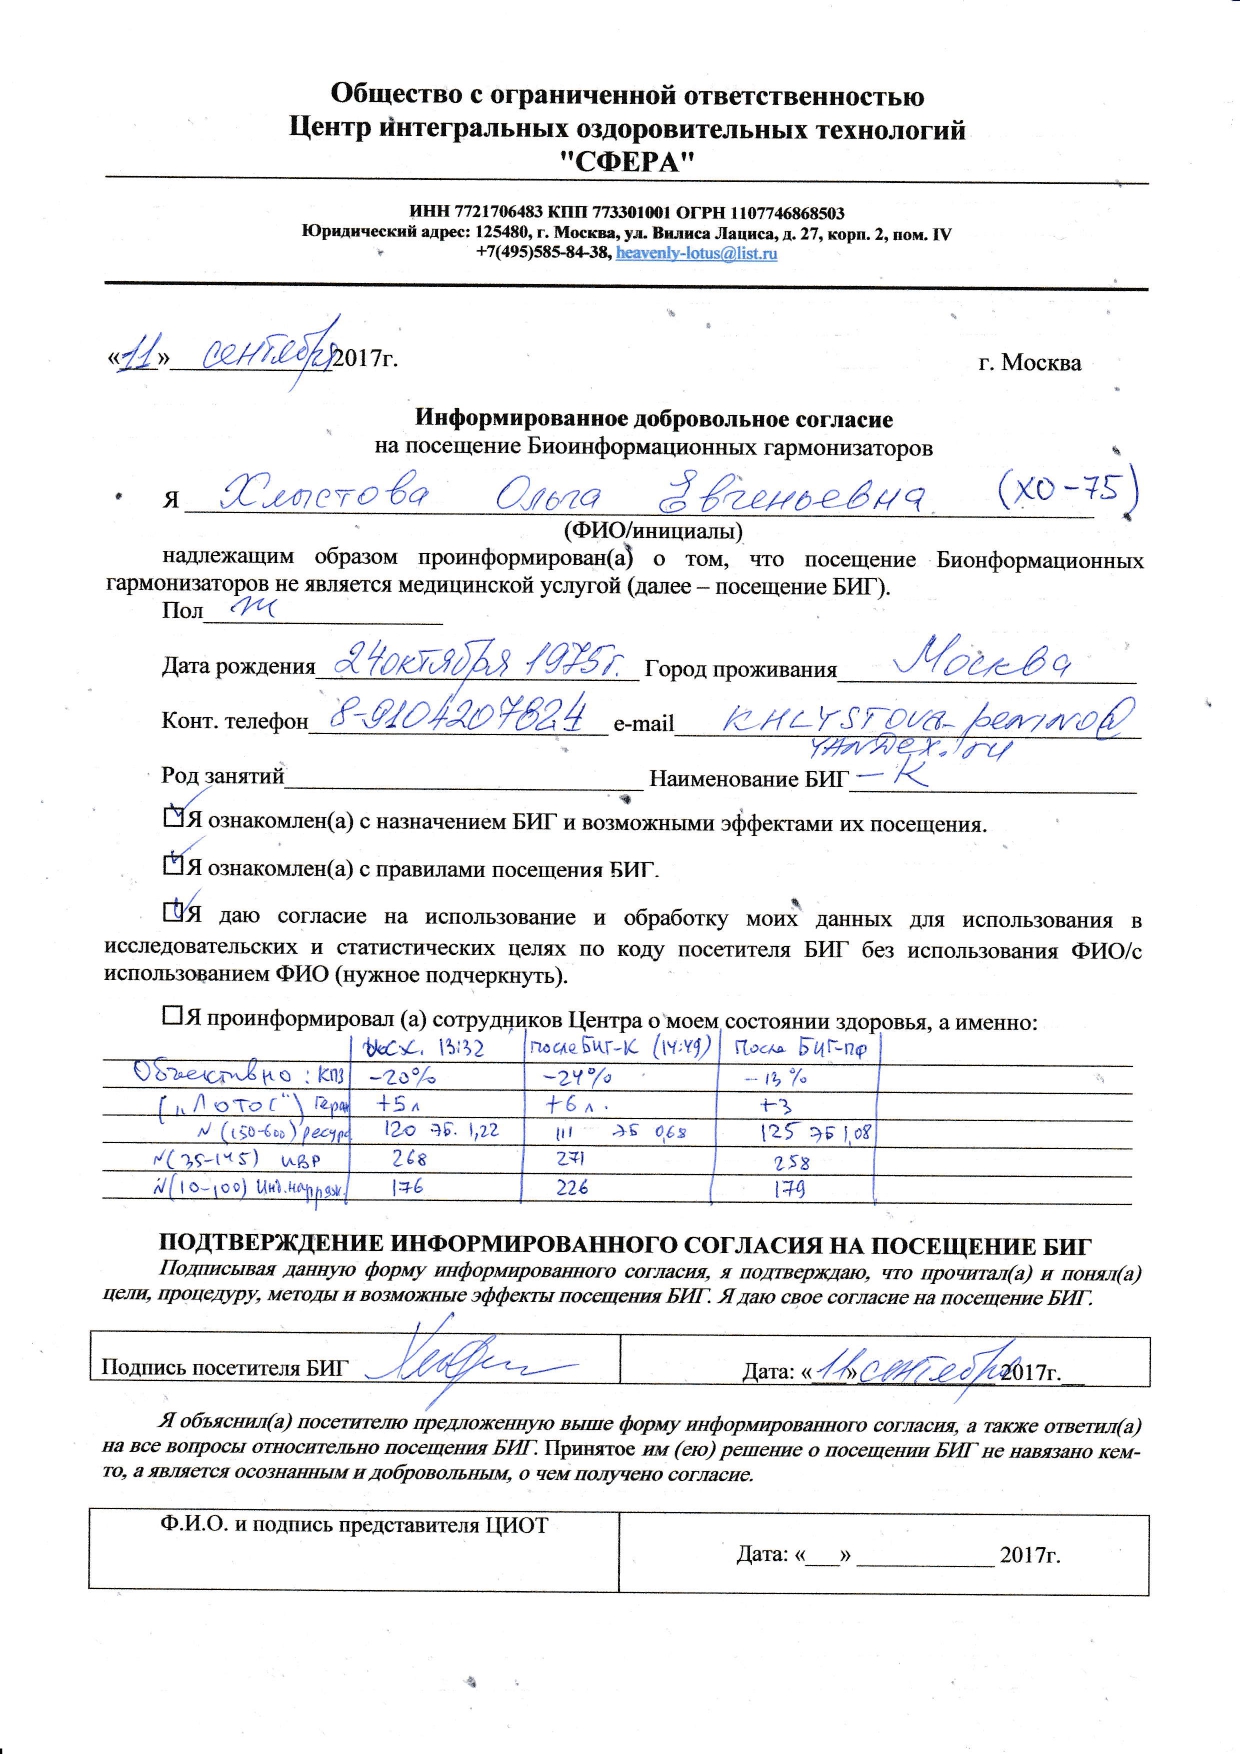 Общество с ограниченной ответственностью
Центр интегральных оздоровительных технологий
"СФЕРА"
ИНН 7721706483 КПП 773301001 ОГРН 1107746868503
Юридический адрес: 125480, г. Москва, ул. Вилиса Лациса, д. 27, корп. 2, пом. IV
+7(495)585-84-38, heavenly-lotus@list.ru
«11» сентября 2017г. г. Москва
Информированное добровольное согласие
на посещение Биоинформационных гармонизаторов
Я Хлыстова Ольга Евгеньевна (ХО-75)
(ФИО/инициалы)
надлежащим образом проинформирован(а) о том, что посещение Бионформационных
гармонизаторов не является медицинской услугой (далее – посещение БИГ).
Пол ж
Дата рождения 24 октября 1975г. Город проживания Москва
Конт. телефон 8-9104207824 e-mail KHLYSTOVA-
YANDEX.ru
Род занятий Наименование БИГ – К
Я ознакомлен(а) с назначением БИГ и возможными эффектами их посещения.
Я ознакомлен(а) с правилами посещения БИГ.
Я даю согласие на использование и обработку моих данных для использования в
исследовательских и статистических целях по коду посетителя БИГ без использования ФИО/с
использованием ФИО (нужное подчеркнуть).
Я проинформировал (а) сотрудников Центра о моем состоянии здоровья, а именно:
Исх. 13:32 После БИГ-К (14:49) После БИГ-ПФ
Объективно: КПЗ -20% -24% -13%
("Лотос") Геран +5л +6л. +3
N (150-600) ресурс 120 ЭБ. 1,22 111 ЭБ 0,68 125 ЭБ 1,08
N(35-145) ИВР 268 271 258
N(10-100) Инд.напряж. 176 226 179
ПОДТВЕРЖДЕНИЕ ИНФОРМИРОВАННОГО СОГЛАСИЯ НА ПОСЕЩЕНИЕ БИГ
Подписывая данную форму информированного согласия, я подтверждаю, что прочитал(а) и понял(а)
цели, процедуру, методы и возможные эффекты посещения БИГ. Я даю свое согласие на посещение БИГ.
Подпись посетителя БИГ Дата: «11» сентября 2017г.
Я объяснил(а) посетителю предложенную выше форму информированного согласия, а также ответил(а)
на все вопросы относительно посещения БИГ. Принятое им (ею) решение о посещении БИГ не навязано кем-
то, а является осознанным и добровольным, о чем получено согласие.
Ф.И.О. и подпись представителя ЦИОТ
Дата: «___» ____________ 2017г.